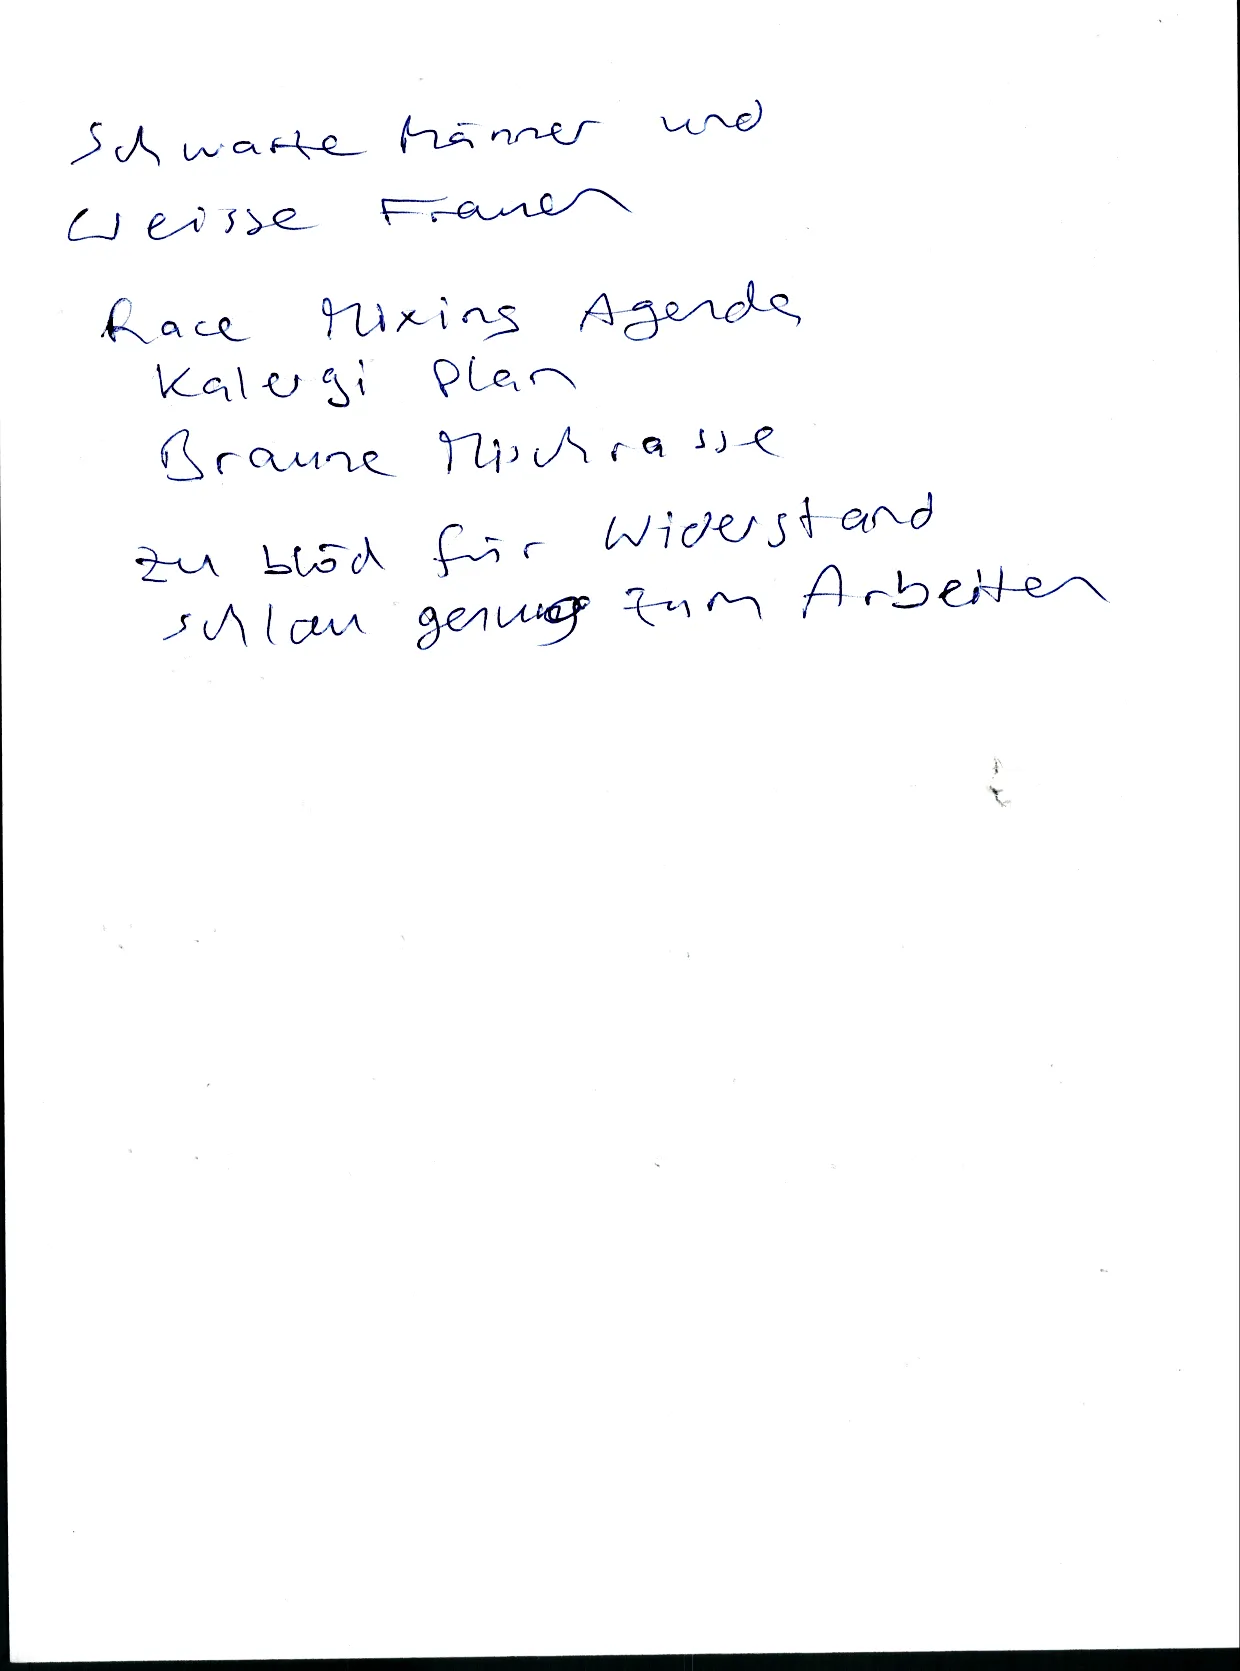 Schwarze Männer und
Weisse Frauen
Race Mixing Agenda
Kalergi Plan
Braune Mischrasse
zu blöd für Widerstand
schlau genug zum Arbeiten